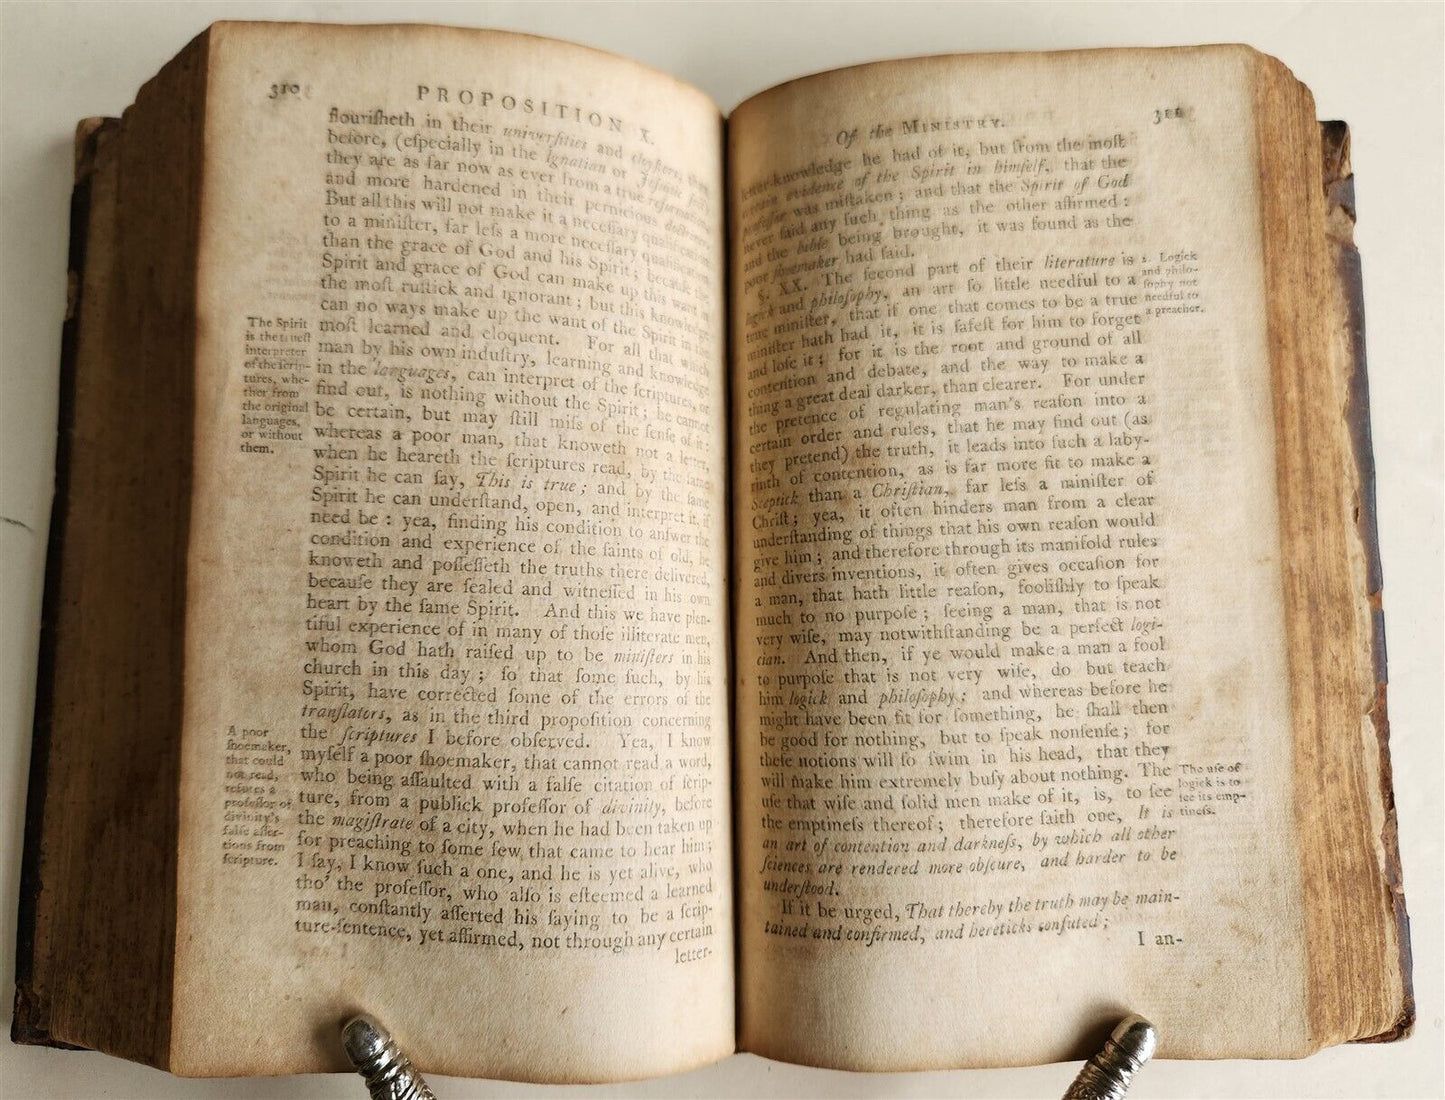 310
PROPOSITION X.
flouriſheth in their univerſities and
before, (eſpecially in the Ignatian or Jeſuitic ſect)
they are as far now as ever from a true reformation,
and more hardened in their pernicious doctrines.
But all this will not make it a neceſſary qualification
to a miniſter, far leſs a more neceſſary qualification
than the grace of God and his Spirit; becauſe the
Spirit and grace of God can make up this want in
the moſt ruſtick and ignorant; but this knowledge
can no ways make up the want of the Spirit in the
moſt learned and eloquent. For all that which
man by his own induſtry, learning and knowledge
in the languages, can interpret of the ſcriptures, or
find out, is nothing without the Spirit; he cannot
be certain, but may ſtill miſs of the ſenſe of it:
whereas a poor man, that knoweth not a letter,
when he heareth the ſcriptures read, by the ſame
Spirit he can ſay, This is true; and by the ſame
Spirit he can underſtand, open, and interpret it, if
need be: yea, finding his condition to anſwer the
condition and experience of the ſaints of old, he
knoweth and poſſeſſeth the truths there delivered,
becauſe they are ſealed and witneſſed in his own
heart by the ſame Spirit. And this we have plen-
tiful experience of in many of thoſe illiterate men,
whom God hath raiſed up to be miniſters in his
church in this day; ſo that ſome ſuch, by his
Spirit, have corrected ſome of the errors of the
tranſlators, as in the third propoſition concerning
the ſcriptures I before obſerved. Yea, I know
myſelf a poor ſhoemaker, that cannot read a word,
who being aſſaulted with a falſe citation of ſcrip-
ture, from a publick profeſſor of divinity, before
the magiſtrate of a city, when he had been taken up
for preaching to ſome few that came to hear him;
I ſay, I know ſuch a one, and he is yet alive, who
tho' the profeſſor, who alſo is eſteemed a learned
man, conſtantly aſſerted his ſaying to be a ſcrip-
ture-ſentence, yet affirmed, not through any certain
letter-
The Spirit
is the trueſt
interpreter
of the ſcrip-
tures, whe-
ther from
the original
languages,
or without
them.
A poor
ſhoemaker,
that could
not read,
refutes a
profeſſor of
divinity's
falſe aſſer-
tions from
ſcripture.
Of the MINISTRY.
311
letter-knowledge he had of it, but from the moſt
certain evidence of the Spirit in himſelf, that the
profeſſor was miſtaken; and that the Spirit of God
never ſaid any ſuch thing as the other affirmed:
and the bible being brought, it was found as the
poor ſhoemaker had ſaid.
§. XX. The ſecond part of their literature is
logick and philoſophy, an art ſo little needful to a
true miniſter, that if one that comes to be a true
miniſter hath had it, it is ſafeſt for him to forget
and loſe it; for it is the root and ground of all
contention and debate, and the way to make a
thing a great deal darker, than clearer. For under
the pretence of regulating man's reaſon into a
certain order and rules, that he may find out (as
they pretend) the truth, it leads into ſuch a laby-
rinth of contention, as is far more fit to make a
Sceptick than a Chriſtian, far leſs a miniſter of
Chriſt; yea, it often hinders man from a clear
underſtanding of things that his own reaſon would
give him; and therefore through its manifold rules
and divers inventions, it often gives occaſion for
a man, that hath little reaſon, fooliſhly to ſpeak
much to no purpoſe; ſeeing a man, that is not
very wiſe, may notwithſtanding be a perfect logi-
cian. And then, if ye would make a man a fool
to purpoſe that is not very wiſe, do but teach
him logick and philoſophy; and whereas before he
might have been fit for ſomething, he ſhall then
be good for nothing, but to ſpeak nonſenſe; for
theſe notions will ſo ſwim in his head, that they
will make him extremely buſy about nothing. The
uſe that wiſe and ſolid men make of it, is, to ſee
the emptineſs thereof; therefore ſaith one, It is
an art of contention and darkneſs, by which all other
ſciences are rendered more obſcure, and harder to be
underſtood.
If it be urged, That thereby the truth may be main-
tained and confirmed, and hereticks confuted;
I an-
2. Logick
and philo-
ſophy not
needful to
a preacher.
The uſe of
logick is to
ſee its emp-
tineſs.